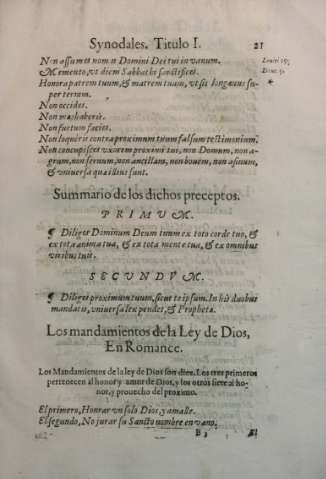 Synodales. Titulo I. 21
Non assumes nomē Domini Dei tui in vanum.
Memento, vt diem Sabbathi sanctifices.
Honora patrem tuum, & matrem tuam, vt sis longæuus super terram.
Non occides.
Non mœchaberis.
Non furtum facies.
Non loqueris contra proximum tuum falsum testimonium.
Non concupisces vxorem proximi tui, non Domum, non agrum, non seruum, non ancillam, non bouem, non asinum,
& vniuersa quæ illius sunt.
Summario de los dichos preceptos.
PRIMVM.
¶ Diliges Dominum Deum tuum ex toto corde tuo, &
ex tota anima tua, & ex tota mente tua, & ex omnibus
viribus tuis.
SECVNDVM.
¶ Diliges proximum tuum, sicut te ipsum. In his duobus
mandatis, vniuersa lex pendet, & Prophetæ.
Los mandamientos de la Ley de Dios,
En Romance.
Los Mandamientos de la ley de Dios son diez. Los tres primeros
pertenecen al honor y amor de Dios, y los otros siete al honor,
y prouecho del proximo.
El primero, Honrar vn solo Dios, y amalle.
El segundo, No jurar su Sancto nombre en vano.
B 3 El